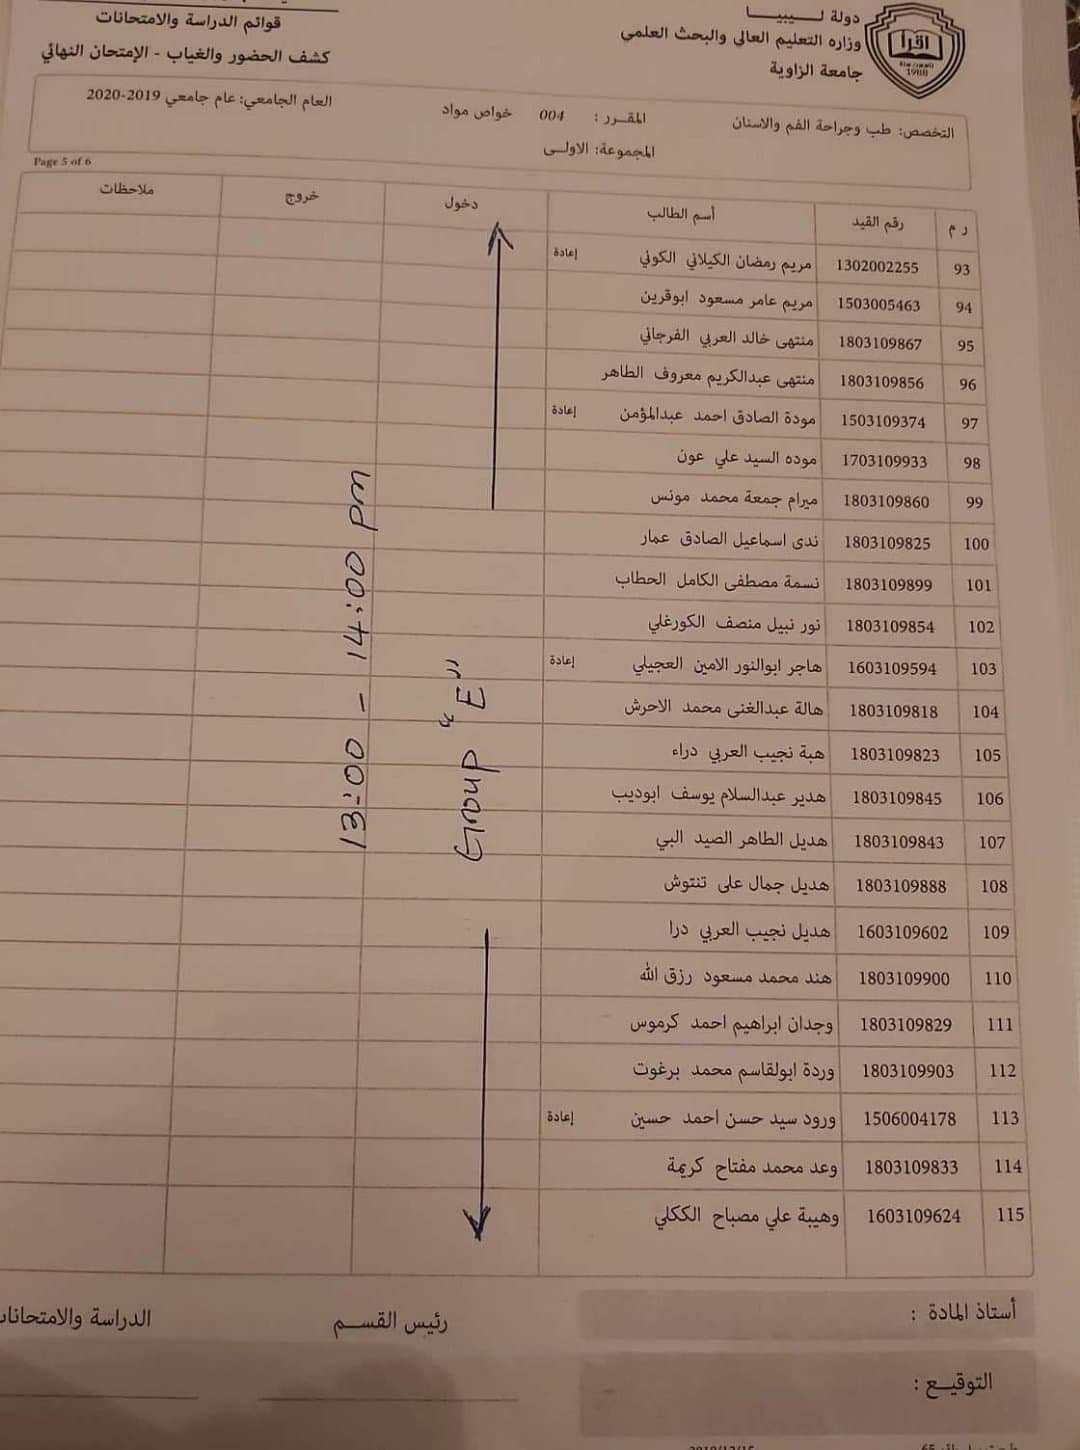 قوائم الدراسة والامتحانات
كشف الحضور والغياب - الإمتحان النهائي
دولة لـــيبيـــا
وزاره التعليم العالي والبحث العلمي
جامعة الزاوية
اقرأ
1988
التخصص: طب وجراحة الفم والاسنان
المقـــرر : 004 خواص مواد
العام الجامعي: عام جامعي 2019-2020
المجموعة: الاولــى
Page 5 of 6
ر م رقم القيد أسم الطالب دخول خروج ملاحظات
93 1302002255 مريم رمضان الكيلاني الكوني إعادة
94 1503005463 مريم عامر مسعود ابوقرين
95 1803109867 منتهى خالد العربي الفرجاني
96 1803109856 منتهى عبدالكريم معروف الطاهر
97 1503109374 مودة الصادق احمد عبدالمؤمن إعادة
98 1703109933 موده السيد علي عون
99 1803109860 ميرام جمعة محمد مونس
100 1803109825 ندى اسماعيل الصادق عمار
101 1803109899 نسمة مصطفى الكامل الحطاب
102 1803109854 نور نبيل منصف الكورغلي
103 1603109594 هاجر ابوالنور الامين العجيلي إعادة
104 1803109818 هالة عبدالغنى محمد الاحرش
105 1803109823 هبة نجيب العربي دراء
106 1803109845 هدير عبدالسلام يوسف ابوديب
107 1803109843 هديل الطاهر الصيد البي
108 1803109888 هديل جمال على تنتوش
109 1603109602 هديل نجيب العربي درا
110 1803109900 هند محمد مسعود رزق الله
111 1803109829 وجدان ابراهيم احمد كرموس
112 1803109903 وردة ابولقاسم محمد برغوت
113 1506004178 ورود سيد حسن احمد حسين إعادة
114 1803109833 وعد محمد مفتاح كريمة
115 1603109624 وهيبة علي مصباح الككلي
Group "E"
13:00 - 14:00 pm
أستاذ المادة :
رئيس القســـم
الدراسة والامتحانات
التوقيــع :